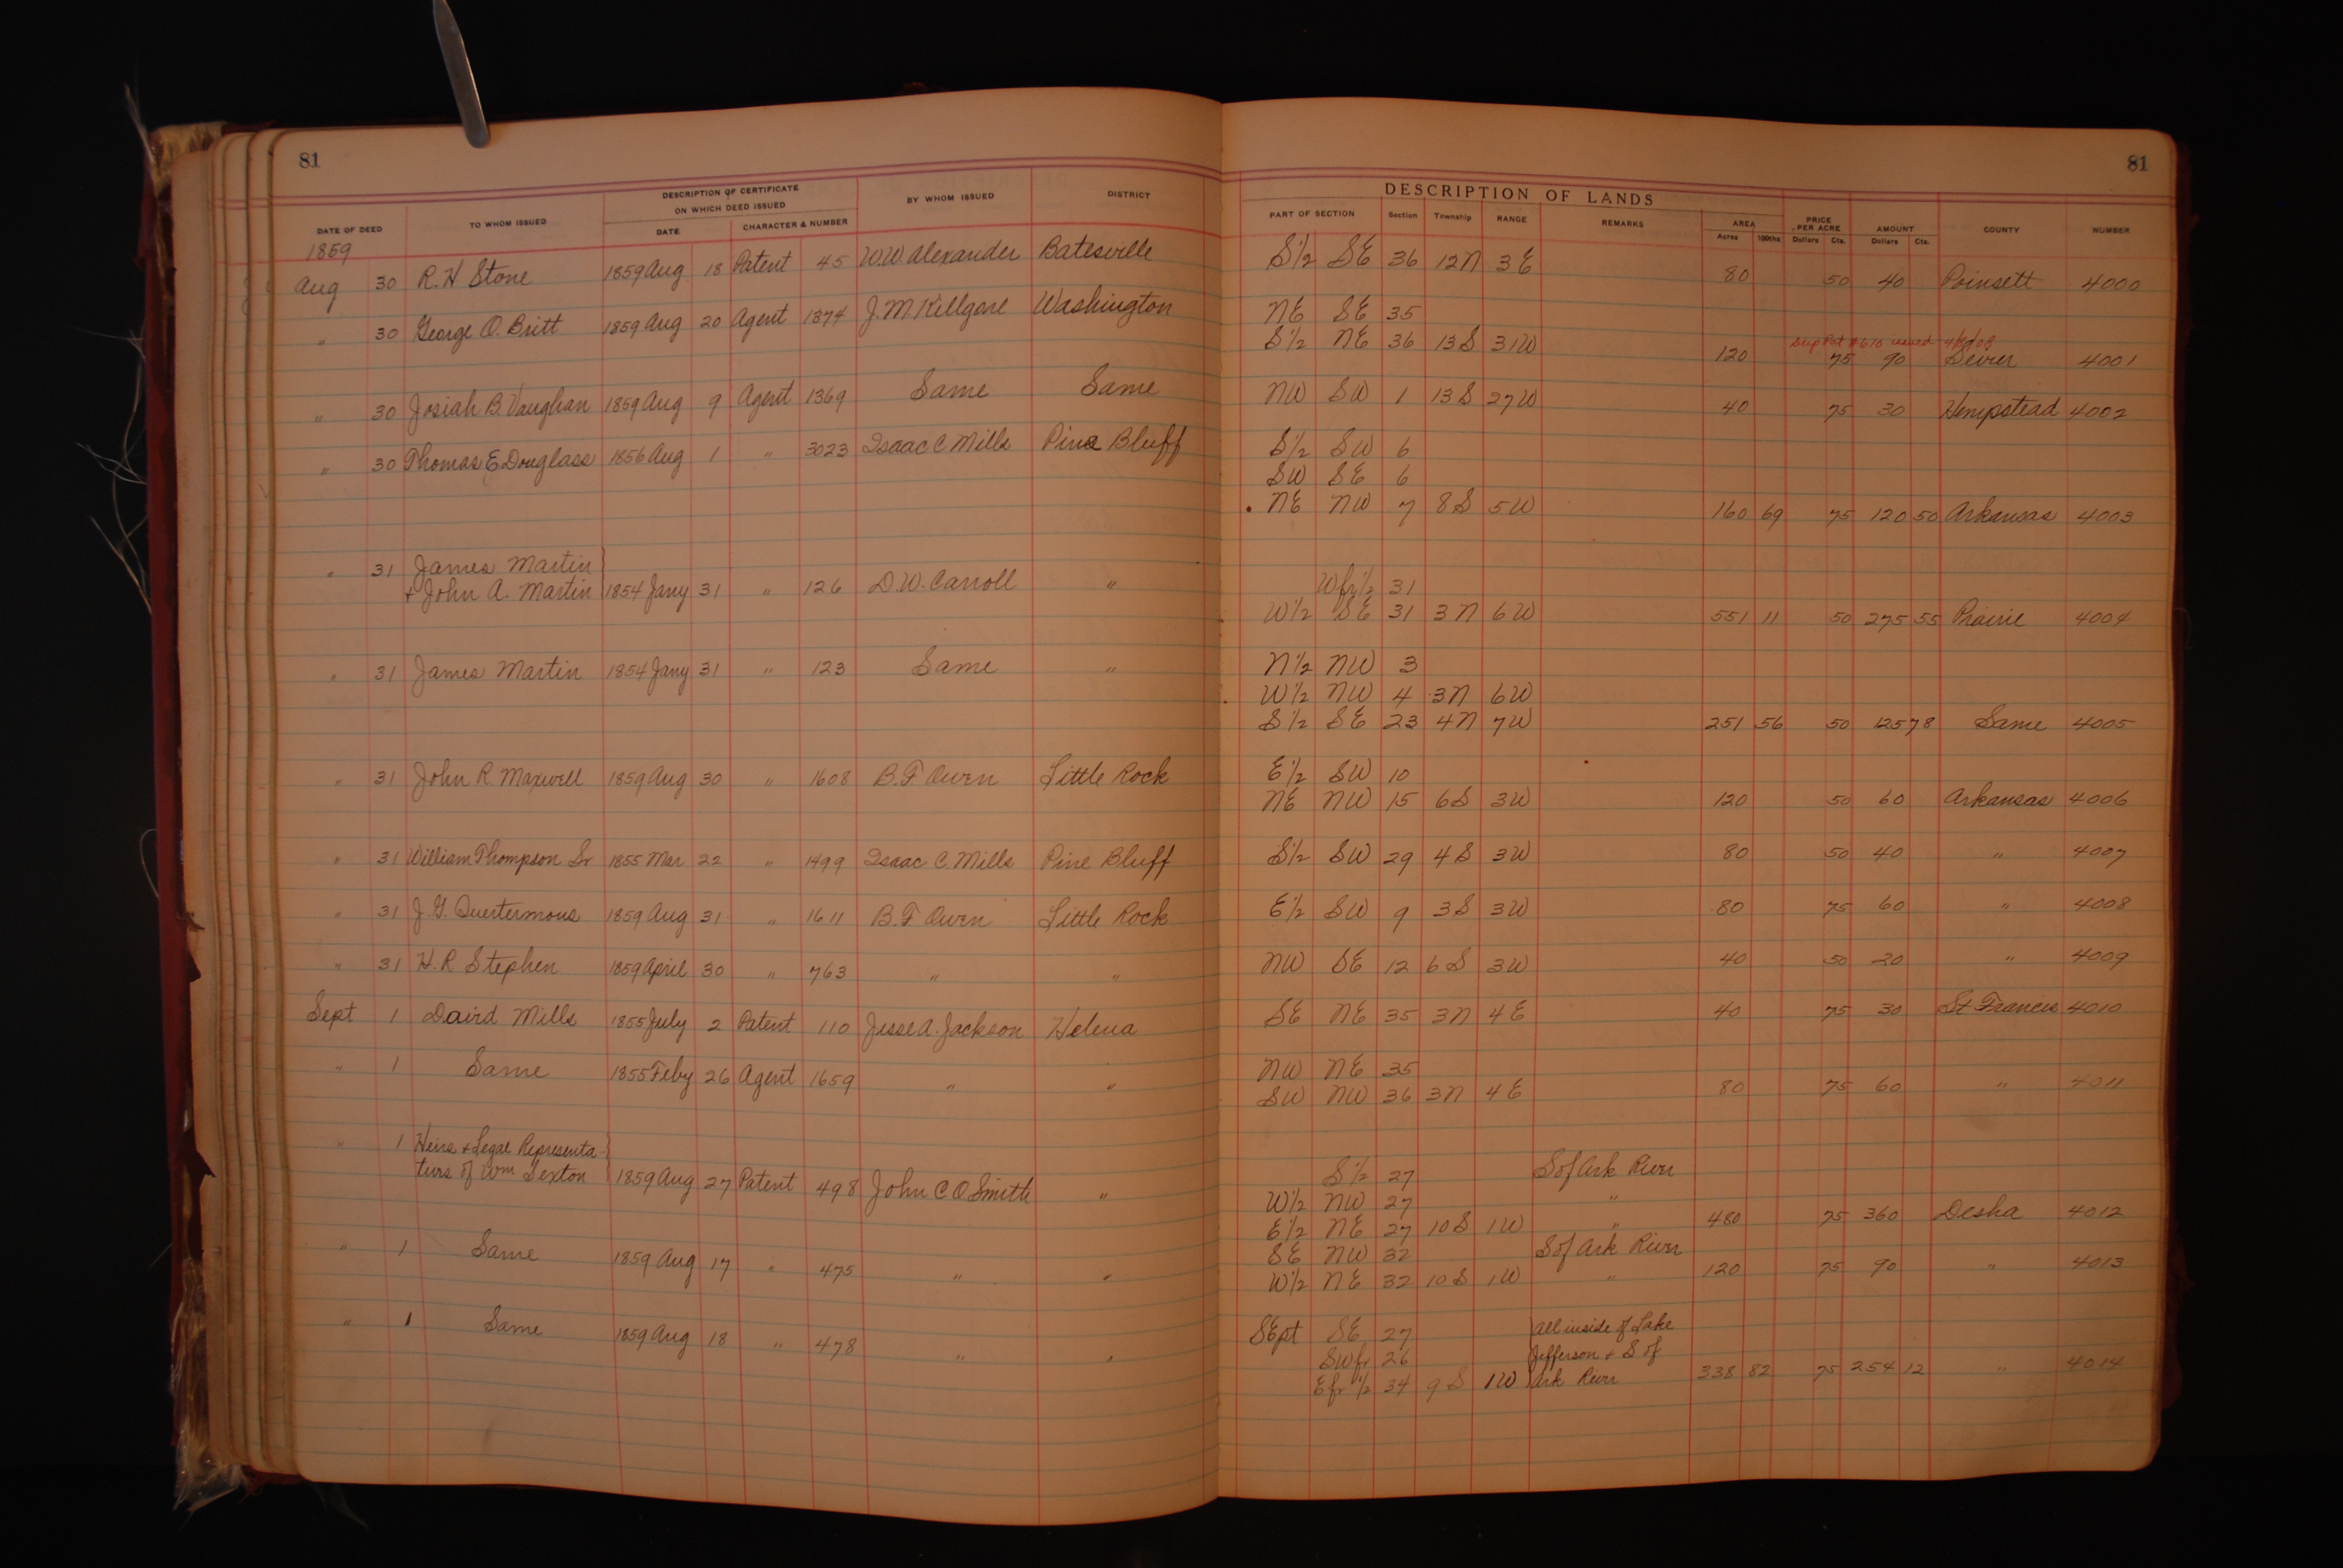 81
DATE OF DEED TO WHOM ISSUED DESCRIPTION OF CERTIFICATE ON WHICH DEED ISSUED BY WHOM ISSUED DISTRICT
DATE CHARACTER & NUMBER
1859
Aug 30 R. H Stone 1859 Aug 18 Patent 45 W.W Alexander Batesville
" 30 George O. Britt 1859 Aug 20 Agent 1374 J. M Killgore Washington
" 30 Josiah B. Vaughan 1859 Aug 9 Agent 1369 Same Same
" 30 Thomas E Douglass 1856 Aug 1 " 3023 Isaac C Mills Pine Bluff
" 31 James Martin
+ John A. Martin 1854 Jany 31 " 126 D. W. Carroll "
" 31 James Martin 1854 Jany 31 " 123 Same "
" 31 John R. Maxwell 1859 Aug 30 " 1608 B. F. Owen Little Rock
" 31 William Thompson Sr 1855 Mar 22 " 1499 Isaac C. Mills Pine Bluff
" 31 J. G. Quertermous 1859 Aug 31 " 1611 B. F Owen Little Rock
" 31 H. R Stephen 1859 April 30 " 763 " "
Sept 1 David Mills 1855 July 2 Patent 110 Jesse A. Jackson Helena
" 1 Same 1855 Feby 26 Agent 1659 " "
" 1 Heirs + Legal Representa-
tives of Wm Sexton 1859 Aug 27 Patent 498 John C O Smith "
" 1 Same 1859 Aug 17 " 475 " "
" 1 Same 1859 Aug 18 " 478 " "
81
DESCRIPTION OF LANDS
PART OF SECTION Section Township RANGE REMARKS AREA PRICE PER ACRE AMOUNT COUNTY NUMBER
Acres 100ths Dollars Cts. Dollars Cts.
S½ SE 36 12N 3E 80 50 40 Poinsett 4000
NE SE 35
Sup Pat #610 issued
S½ NE 36 13S 31W 120 75 90 Sevier 4001
NW SW 1 13S 27W 40 75 30 Hempstead 4002
S½ SW 6
SW SE 6
NE NW 7 8S 5W 160 69 75 120 50 Arkansas 4003
Wfr½ 31
W½ SE 31 3N 6W 551 11 50 275 55 Prairie 4004
N½ NW 3
W½ NW 4 3N 6W
S½ SE 23 4N 7W 251 56 50 125 78 Same 4005
E½ SW 10
NE NW 15 6S 3W 120 50 60 Arkansas 4006
S½ SW 29 4S 3W 80 50 40 " 4007
E½ SW 9 3S 3W 80 75 60 " 4008
NW SE 12 6S 3W 40 50 20 " 4009
SE NE 35 3N 4E 40 75 30 St Francis 4010
NW NE 35
SW NW 36 3N 4E 80 75 60 " 4011
S½ 27 S of Ark River
W½ NW 27 "
E½ NE 27 10S 1W " 480 75 360 Desha 4012
SE NW 32 S of Ark River
W½ NE 32 10S 1W " 120 75 90 " 4013
SEpt SE 27 All inside of Lake
SWfr 26 Jefferson + S of
Efr½ 34 9S 1W Ark River 338 82 75 254 12 " 4014